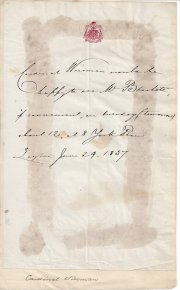 Cardinal Wiseman would be
happy to see Mr
if convenient, on tuesday (tomorrow)
about 12, at 8 York Place
June 29. 1857
Cardinal Wiseman